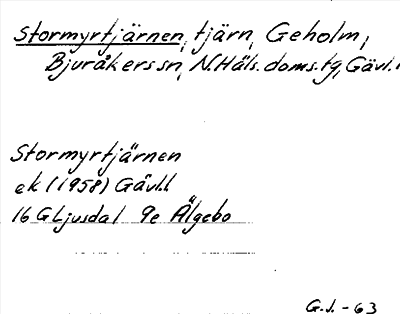 Stormyrtjärnen, tjärn, Geholm,
Bjuråkers sn, N. Häls. doms. tg, Gävl.
Stormyrtjärnen
ek (1958) Gävl.l
16 G Ljusdal 9e Älgebo
G.J. - 63